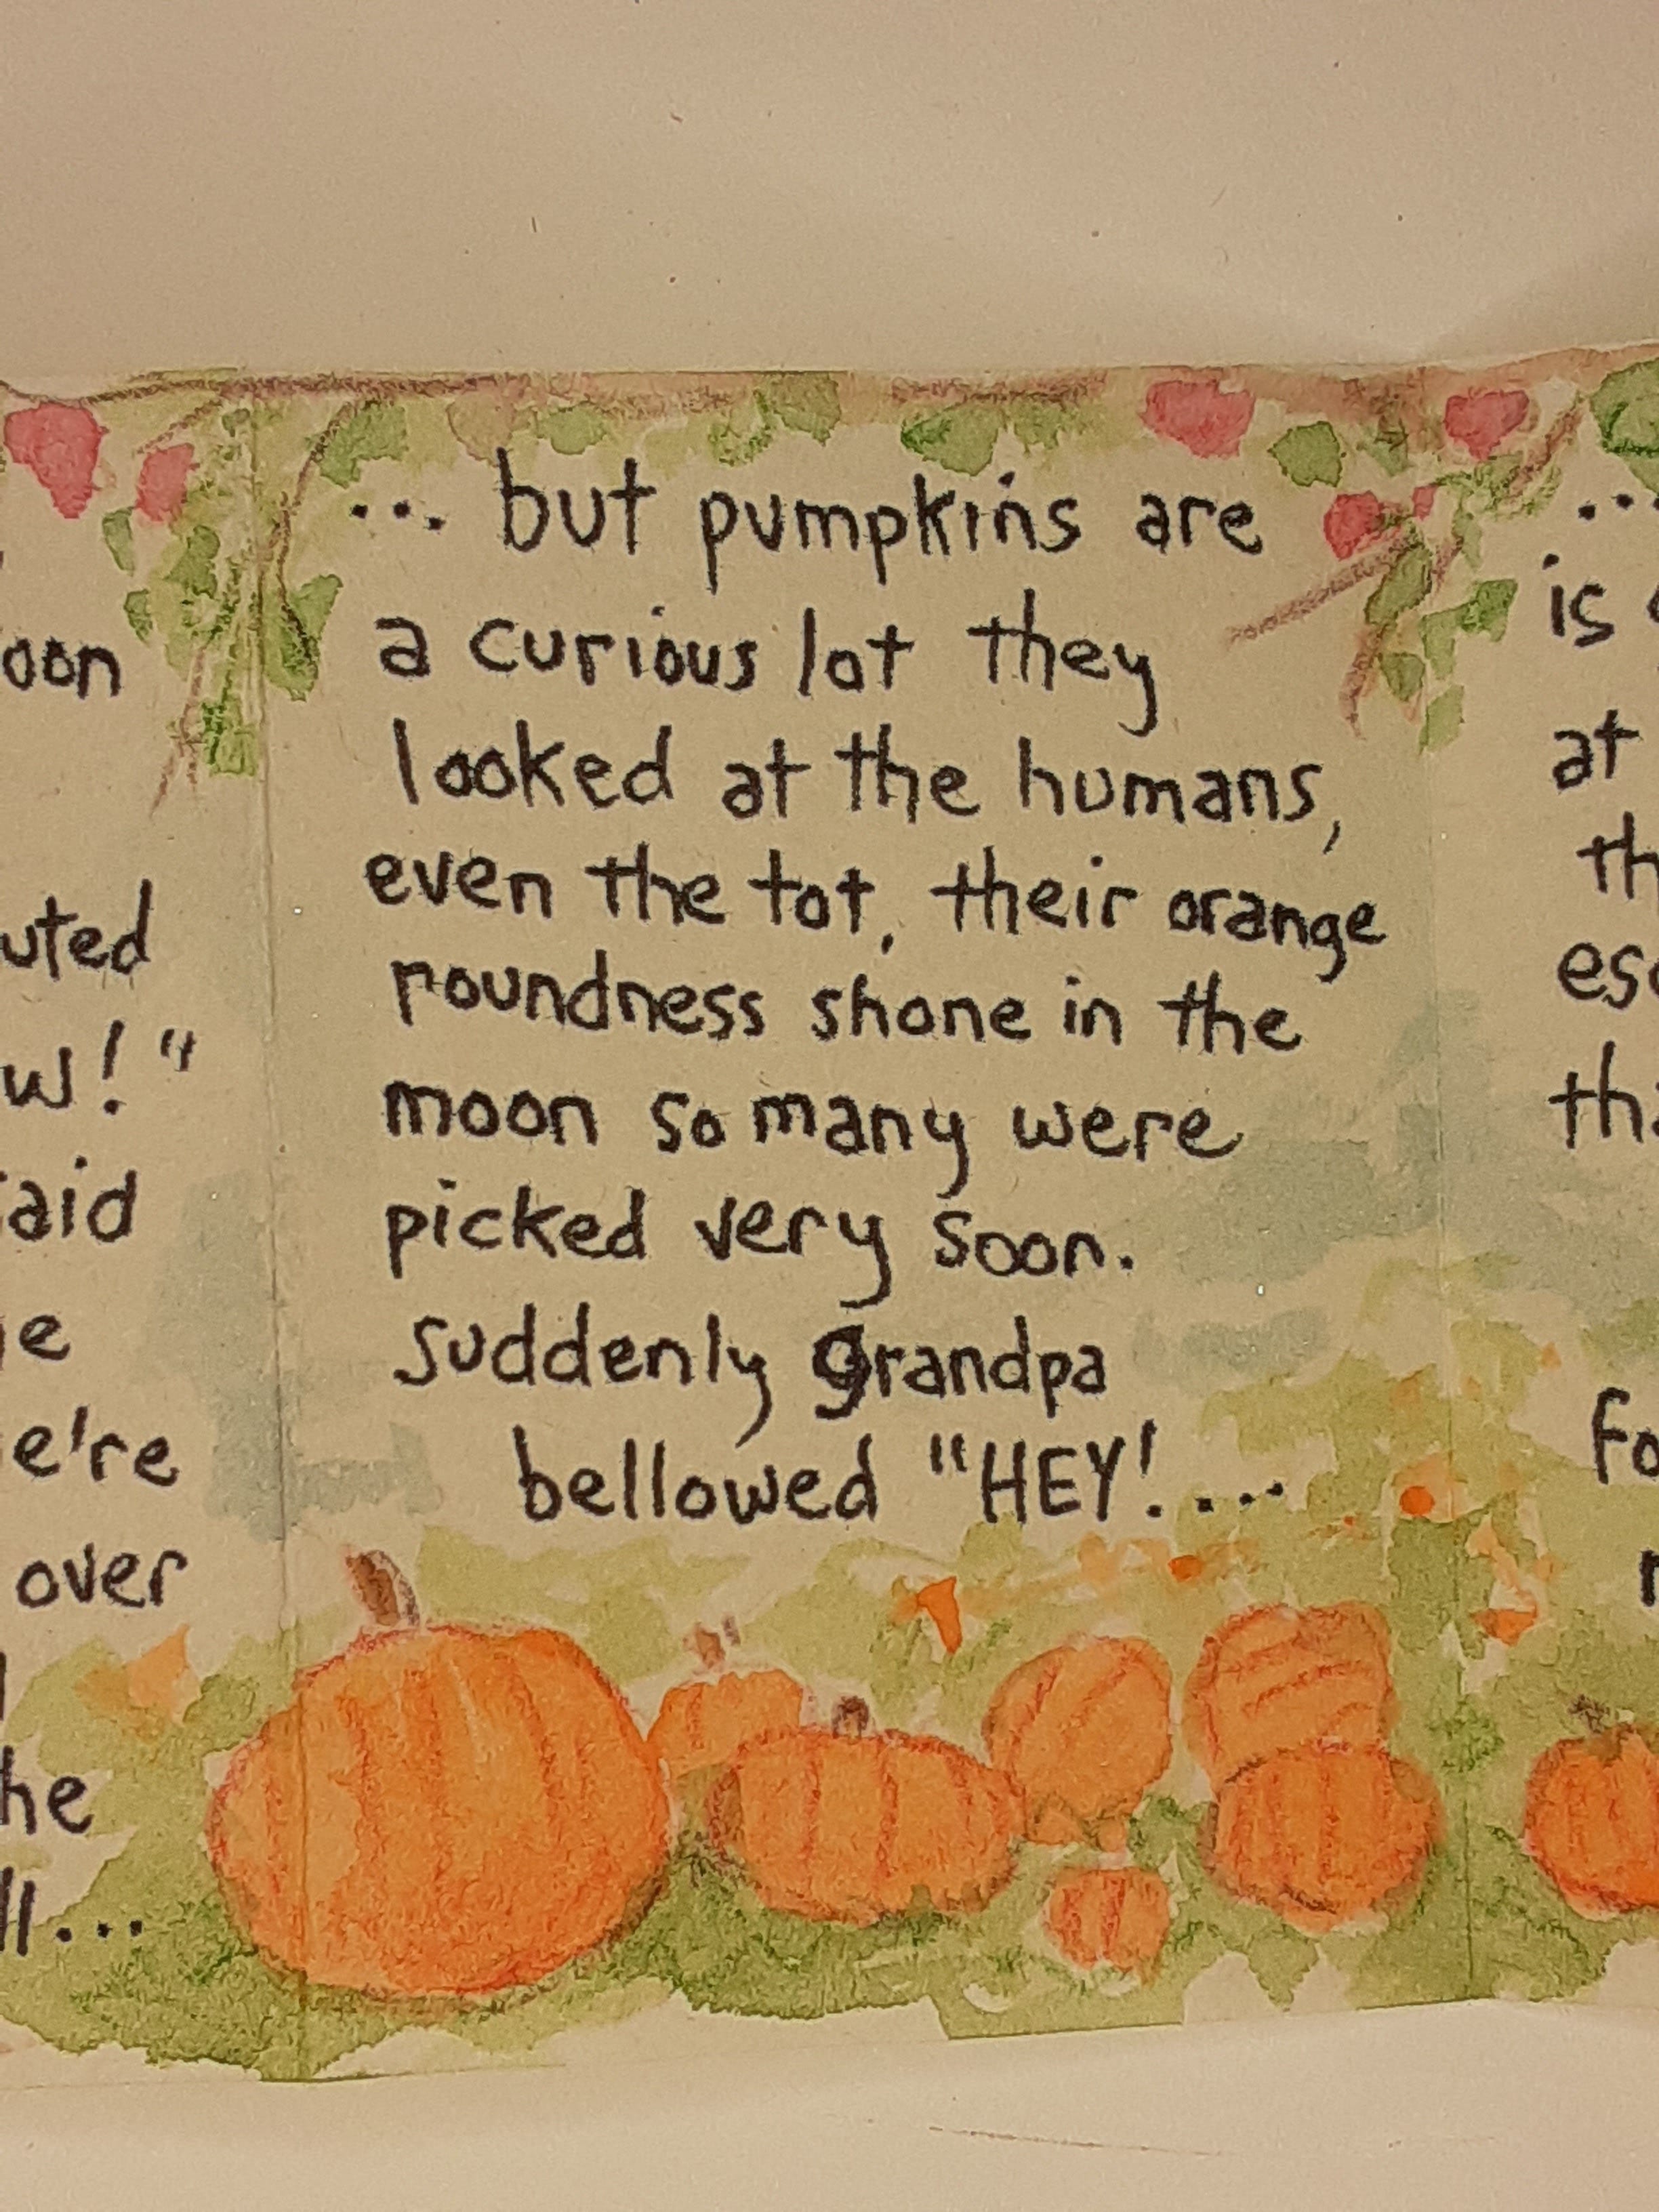 ... but pumpkins are
a curious lot they
looked at the humans,
even the tot, their orange
roundness shone in the
moon so many were
picked very soon.
suddenly grandpa
bellowed "HEY!....
over
...
is
at